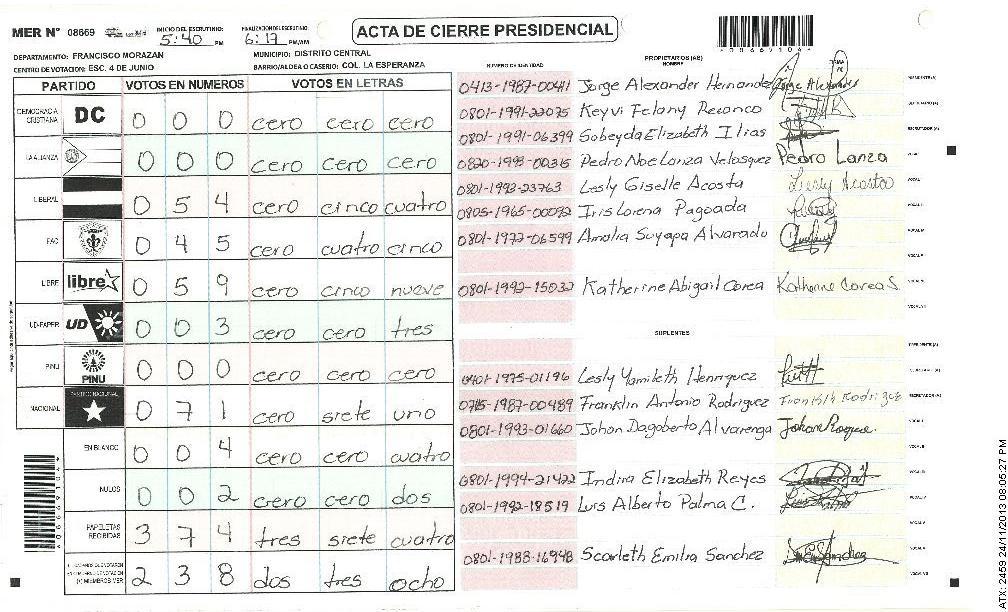 MER Nº 08669
INICIO DEL ESCRUTINIO: 5:40 PM
FINALIZACION DEL ESCRUTINIO: 6:17 PM/AM
ACTA DE CIERRE PRESIDENCIAL
DEPARTAMENTO: FRANCISCO MORAZAN
MUNICIPIO: DISTRITO CENTRAL
CENTRO DE VOTACION: ESC. 4 DE JUNIO
BARRIO/ALDEA O CASERIO: COL. LA ESPERANZA
PARTIDO VOTOS EN NUMEROS VOTOS EN LETRAS
DEMOCRACIA CRISTIANA DC 0 0 0 cero cero cero
LA ALIANZA 0 0 0 cero cero cero
LIBERAL 0 5 4 cero cinco cuatro
FAC 0 4 5 cero cuatro cinco
LIBRE libre 0 5 9 cero cinco nueve
UD-FAPER UD 0 0 3 cero cero tres
PINU PINU 0 0 0 cero cero cero
NACIONAL PARTIDO NACIONAL 0 7 1 cero siete uno
EN BLANCO 0 0 4 cero cero cuatro
NULOS 0 0 2 cero cero dos
PAPELETAS RECIBIDAS 3 7 4 tres siete cuatro
2 3 8 dos tres ocho
NUMERO DE IDENTIDAD PROPIETARIOS (AS) NOMBRE FIRMA
0413-1987-00411 Jorge Alexander Hernandez PRESIDENTE (A)
0801-1991-22075 Keyvi Felony
0801-1991-06399 Sobeyda Elizabeth ESCRUTADOR (A)
0820-1993-00315 Pedro Noe Lanza Velasquez Pedro Lanza
0801-1993-23763 Lesly Giselle Acosta Lesly Acosta
0805-1965-00072 Iris Lorena Pagoada
0801-1972-06599 Amalia Suyapa Alvarado
0801-1992-15032 Katherine Abigail Corea Katherine Corea S.
SUPLENTES
0401-1975-01196 Lesly Yamileth Henriquez
0715-1987-00489 Franklin Antonio Rodriguez Franklin Rodriguez
0801-1993-01660 Johan Dagoberto Alvarenga
0801-1994-21422 Indira Elizabeth Reyes
0801-1992-18519 Luis Alberto Palma C.
0801-1983-16948 Scarleth Emilia Sanchez
ATX: 2459 24/11/2013 08:05:27 PM